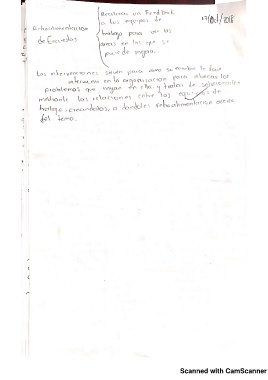 Retroalimentación de Encuestas
Realizar un Feedback
a los equipos de
trabajo para ver las
áreas en las que se
puede mejorar.
Las intervenciones sirven para como su nombre lo dice
intervenir en la organización para abarcar los
problemas que hayan en ella y tratar de
mediante las relaciones entre los equipos de
trabajo, o dándoles retroalimentación acerca
del tema.
Scanned with CamScanner